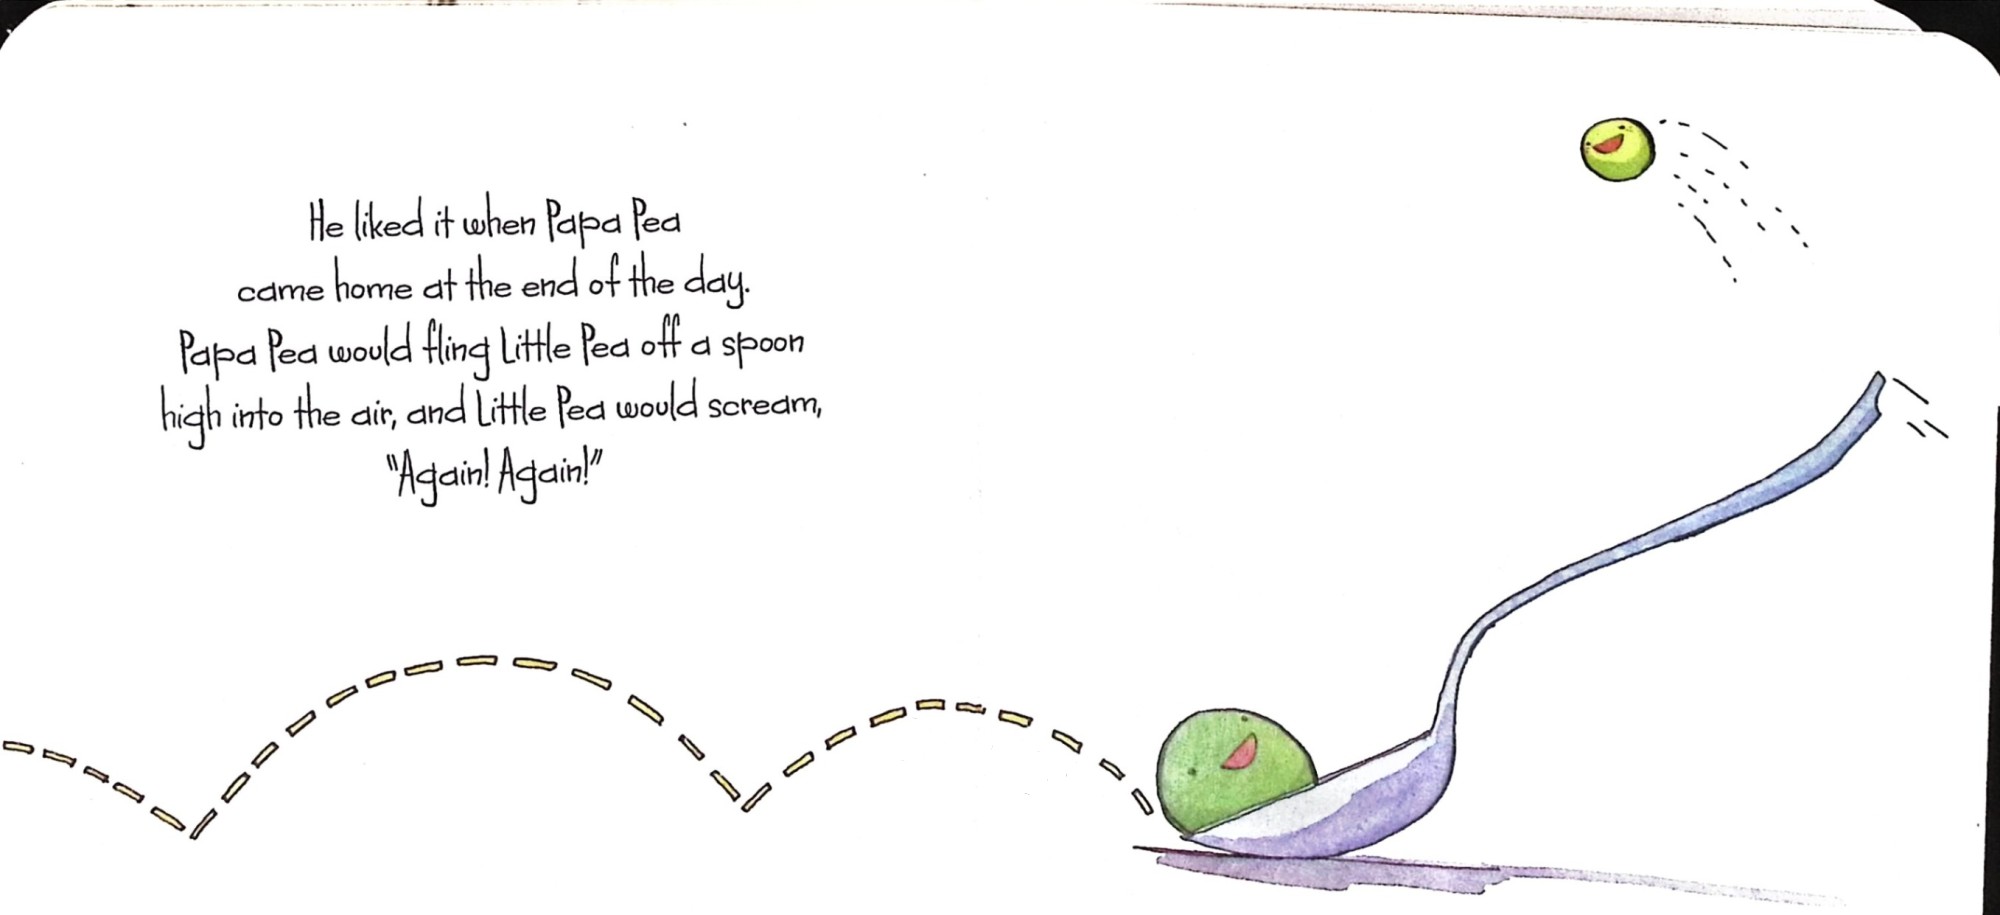 He liked it when Papa Pea
came home at the end of the day.
Papa Pea would fling Little Pea off a spoon
high into the air, and Little Pea would scream,
"Again! Again!"